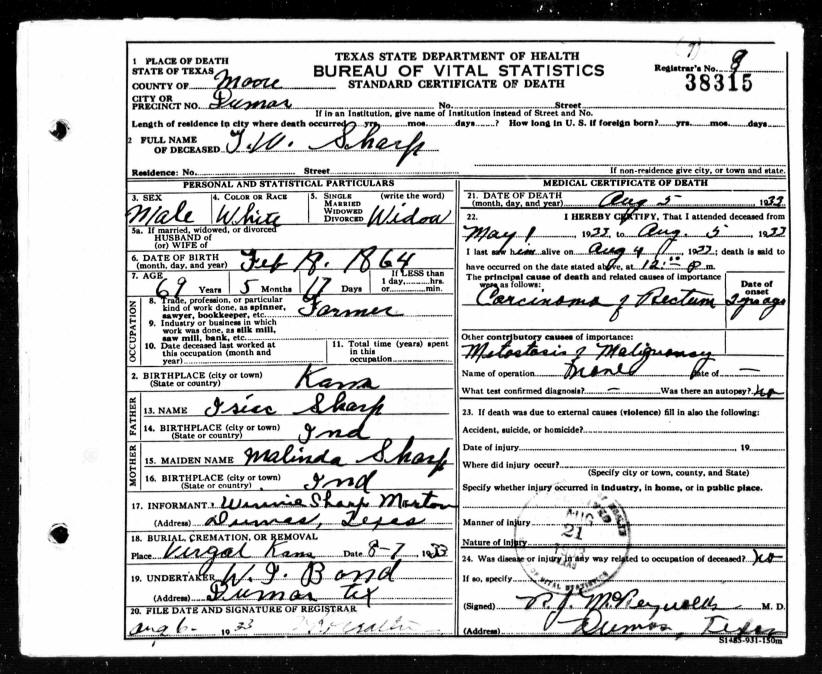 TEXAS STATE DEPARTMENT OF HEALTH
BUREAU OF VITAL STATISTICS
STANDARD CERTIFICATE OF DEATH
Registrar's No. 8
38315
1 PLACE OF DEATH
STATE OF TEXAS
COUNTY OF Moore
CITY OR
PRECINCT NO. Dumas No. Street
If in an Institution, give name of Institution instead of Street and No.
Length of residence in city where death occurred yrs. mos. days ? How long in U. S. if foreign born? yrs. mos. days
2 FULL NAME
OF DECEASED T.W. Sharp
Residence: No. Street If non-residence give city, or town and state.
PERSONAL AND STATISTICAL PARTICULARS
3. SEX 4. COLOR OR RACE 5. SINGLE (write the word)
MARRIED
WIDOWED
DIVORCED
Male White Widow
5a. If married, widowed, or divorced
HUSBAND of
(or) WIFE of
6. DATE OF BIRTH
(month, day, and year) Feb 18. 1864
7. AGE If LESS than
1 day, hrs.
or min.
69 Years 5 Months 17 Days
OCCUPATION
8. Trade, profession, or particular
kind of work done, as spinner,
sawyer, bookkeeper, etc. Farmer
9. Industry or business in which
work was done, as silk mill,
saw mill, bank, etc.
10. Date deceased last worked at
this occupation (month and
year)
11. Total time (years) spent
in this
occupation
2. BIRTHPLACE (city or town)
(State or country) Kans
FATHER
13. NAME Isiac Sharp
14. BIRTHPLACE (city or town)
(State or country) Ind
MOTHER
15. MAIDEN NAME Malinda Sharp
16. BIRTHPLACE (city or town)
(State or country) Ind
17. INFORMANT Winnie Sharp Morton
(Address) Dumas, Texas
18. BURIAL, CREMATION, OR REMOVAL
Place Virgal Kans Date 8-7 1933
19. UNDERTAKER W. I. Bond
(Address) Dumas Tex
20. FILE DATE AND SIGNATURE OF REGISTRAR
Aug 6- 1933
MEDICAL CERTIFICATE OF DEATH
21. DATE OF DEATH
(month, day, and year) Aug 5 1933
22. I HEREBY CERTIFY, That I attended deceased from
May 1 1933 to Aug. 5 1933
I last saw him alive on Aug 4 1933; death is said to
have occurred on the date stated above, at 12:00 P m.
The principal cause of death and related causes of importance
were as follows:
Date of
onset
Carcinoma of Rectum 2 yrs ago
Other contributory causes of importance:
Metastasis of Malignancy
Name of operation None Date of —
What test confirmed diagnosis? — Was there an autopsy? no
23. If death was due to external causes (violence) fill in also the following:
Accident, suicide, or homicide?
Date of injury 19
Where did injury occur?
(Specify city or town, county, and State)
Specify whether injury occurred in industry, in home, or in public place.
Manner of injury
Nature of injury
AUG
21
OF VITAL STATISTICS
24. Was disease or injury in any way related to occupation of deceased? no
If so, specify
(Signed) R. J. McReynolds M. D.
(Address) Dumas, Texas
S1485-931-150m